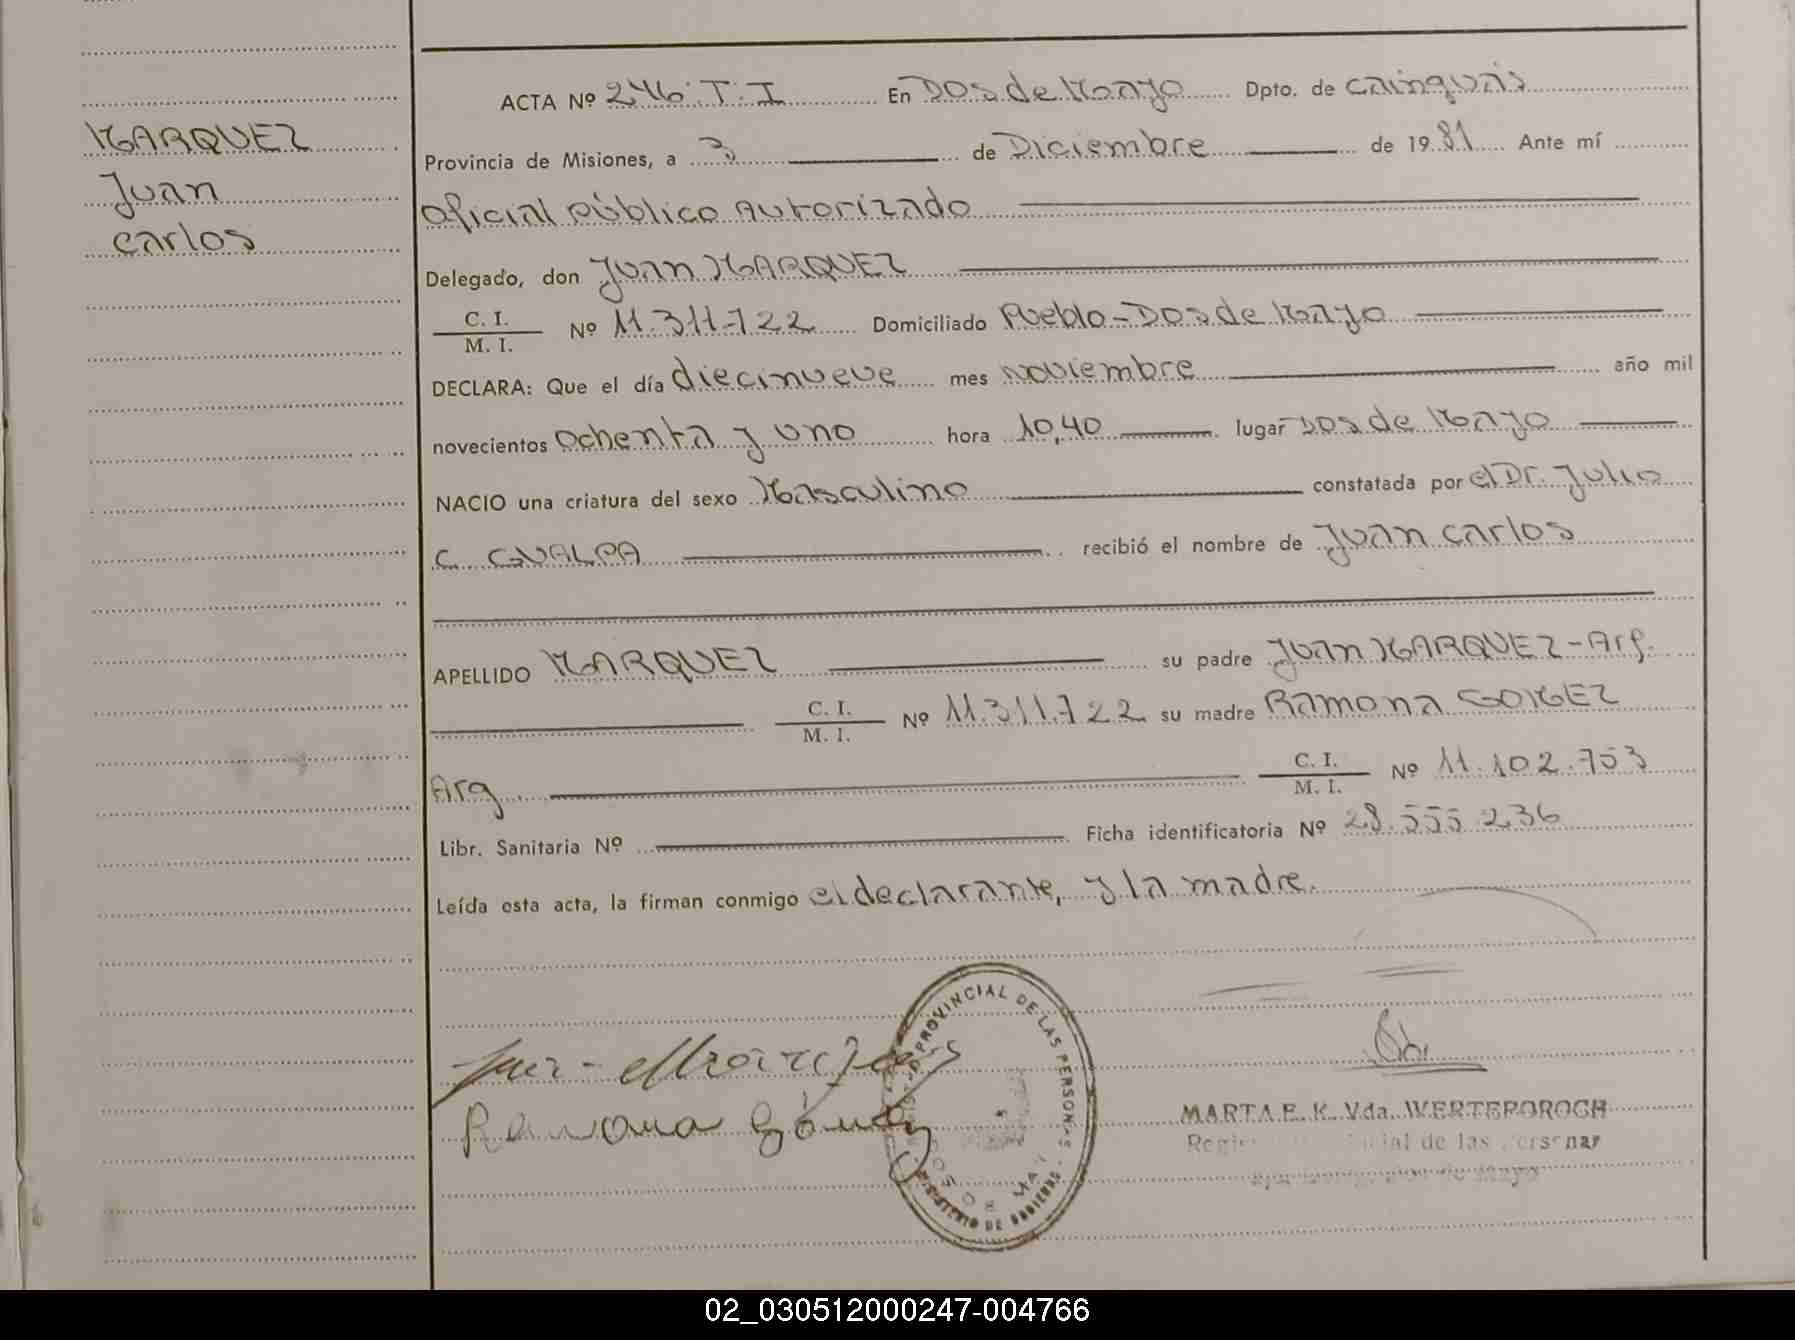 MARQUEZ
Juan
Carlos
ACTA Nº 246. T. I En Dos de Mayo Dpto. de Cainguás
Provincia de Misiones, a 3 de Diciembre de 1981 Ante mí
Oficial Público Autorizado
Delegado, don Juan MARQUEZ
C. I.
M. I. Nº 11.311.722 Domiciliado Pueblo-Dos de Mayo
DECLARA: Que el día diecinueve mes Noviembre año mil
novecientos ochenta y uno hora 10,40 lugar Dos de Mayo
NACIO una criatura del sexo Masculino constatada por el Dr. Julio
C. GUALPA recibió el nombre de Juan Carlos
APELLIDO MARQUEZ su padre Juan MARQUEZ-Arg.
C. I.
M. I. Nº 11.311.722 su madre Ramona GOMEZ
Arg. C. I.
M. I. Nº 11.102.753
Libr. Sanitaria Nº Ficha identificatoria Nº 28.555.236
Leída esta acta, la firman conmigo el declarante, y la madre.
Ramona Gómez
PROVINCIAL DE LAS PERSONAS
MINISTERIO DE GOBIERNO
MARTA E. K. Vda. WERTEPOROCH
de las